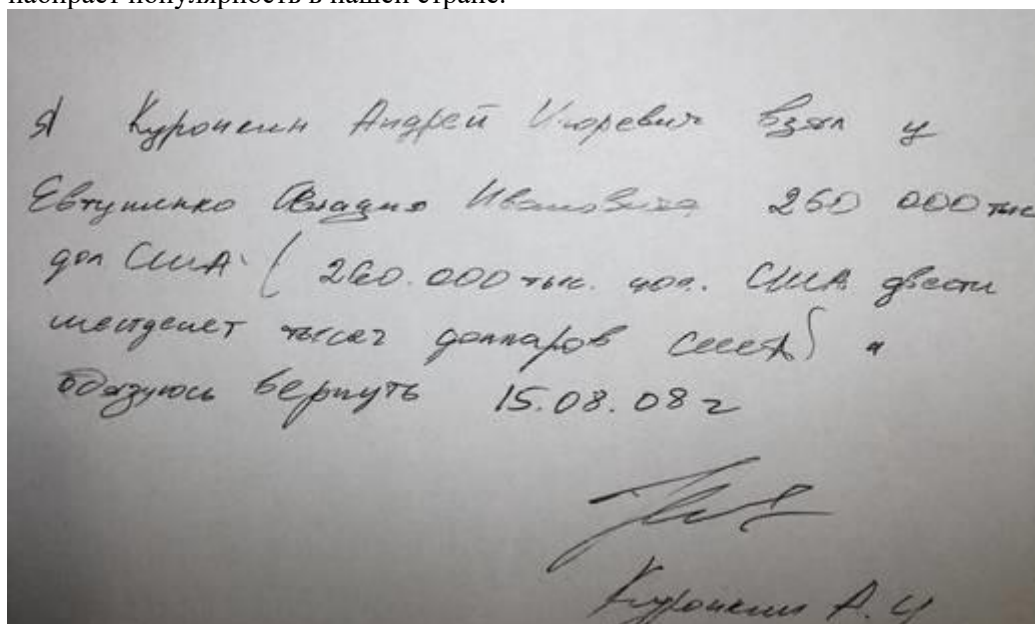 набирает популярность в нашей стране.
Я Куронкин Андрей Игоревич взял у
Евтушенко Ивановича 260 000 тыс
дол США (260.000 тыс. дол. США двести
шестдесет тысяч долларов США) и
обязуюсь вернуть 15.08.08 г
Куронкин А. И